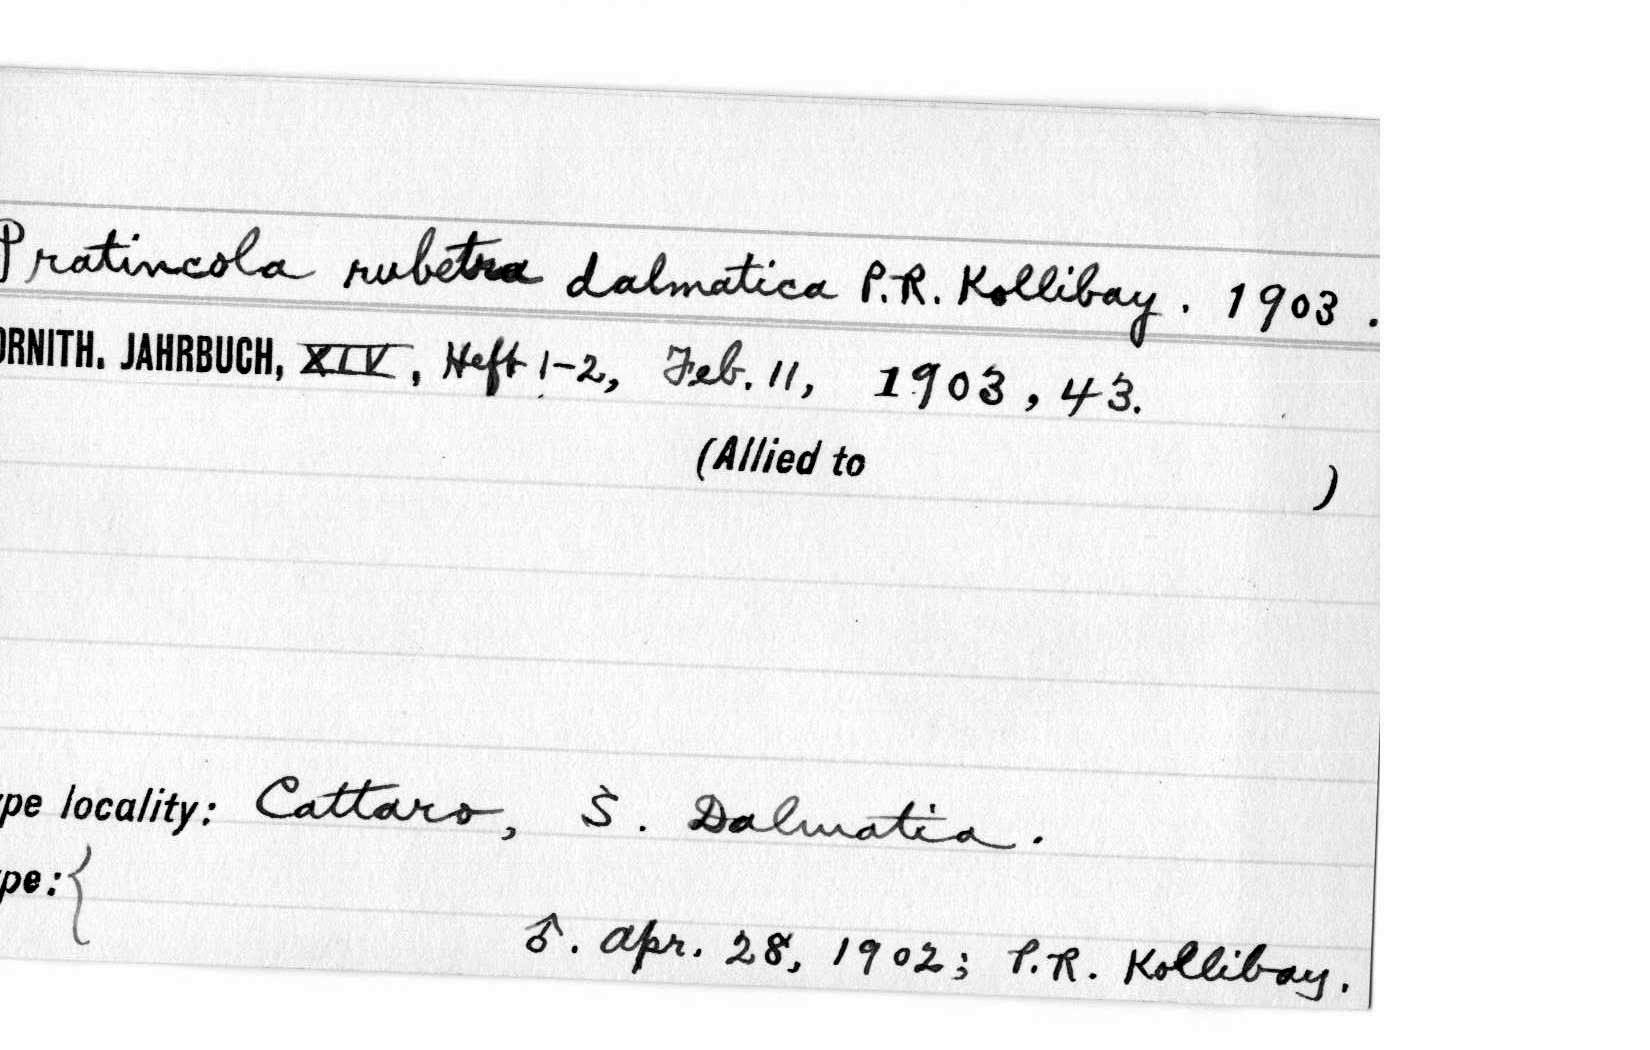 Pratincola rubetra dalmatica P.R. Kollibay. 1903.
ORNITH. JAHRBUCH, XIV, Heft 1-2, Feb. 11, 1903, 43.
(Allied to )
ype locality: Cattaro, S. Dalmatia.
ype: {
♂. Apr. 28, 1902; P.R. Kollibay.